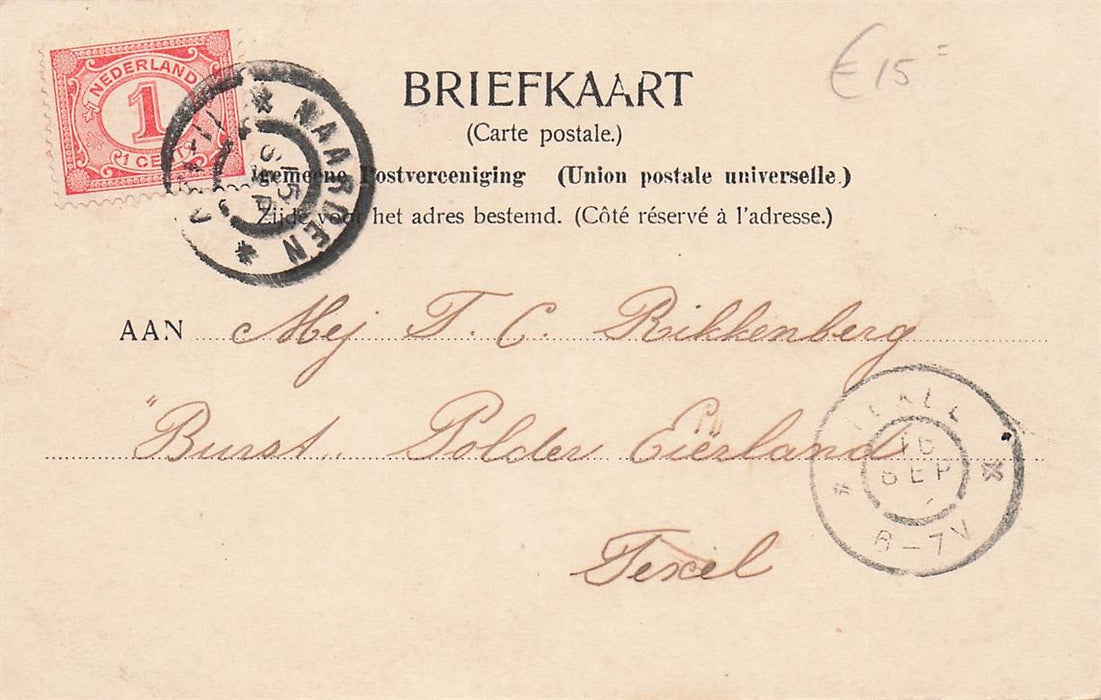 NEDERLAND
1
1 CENT
NAARDEN
15 SEP
€ 15=
BRIEFKAART
(Carte postale.)
Algemeene Postvereeniging (Union postale universelle.)
Zijde voor het adres bestemd. (Côté réservé à l'adresse.)
AAN Mej T. C. Rikkenberg
"Burst. Polder Eierland
Texel
TEXEL
16
SEP
6-7V